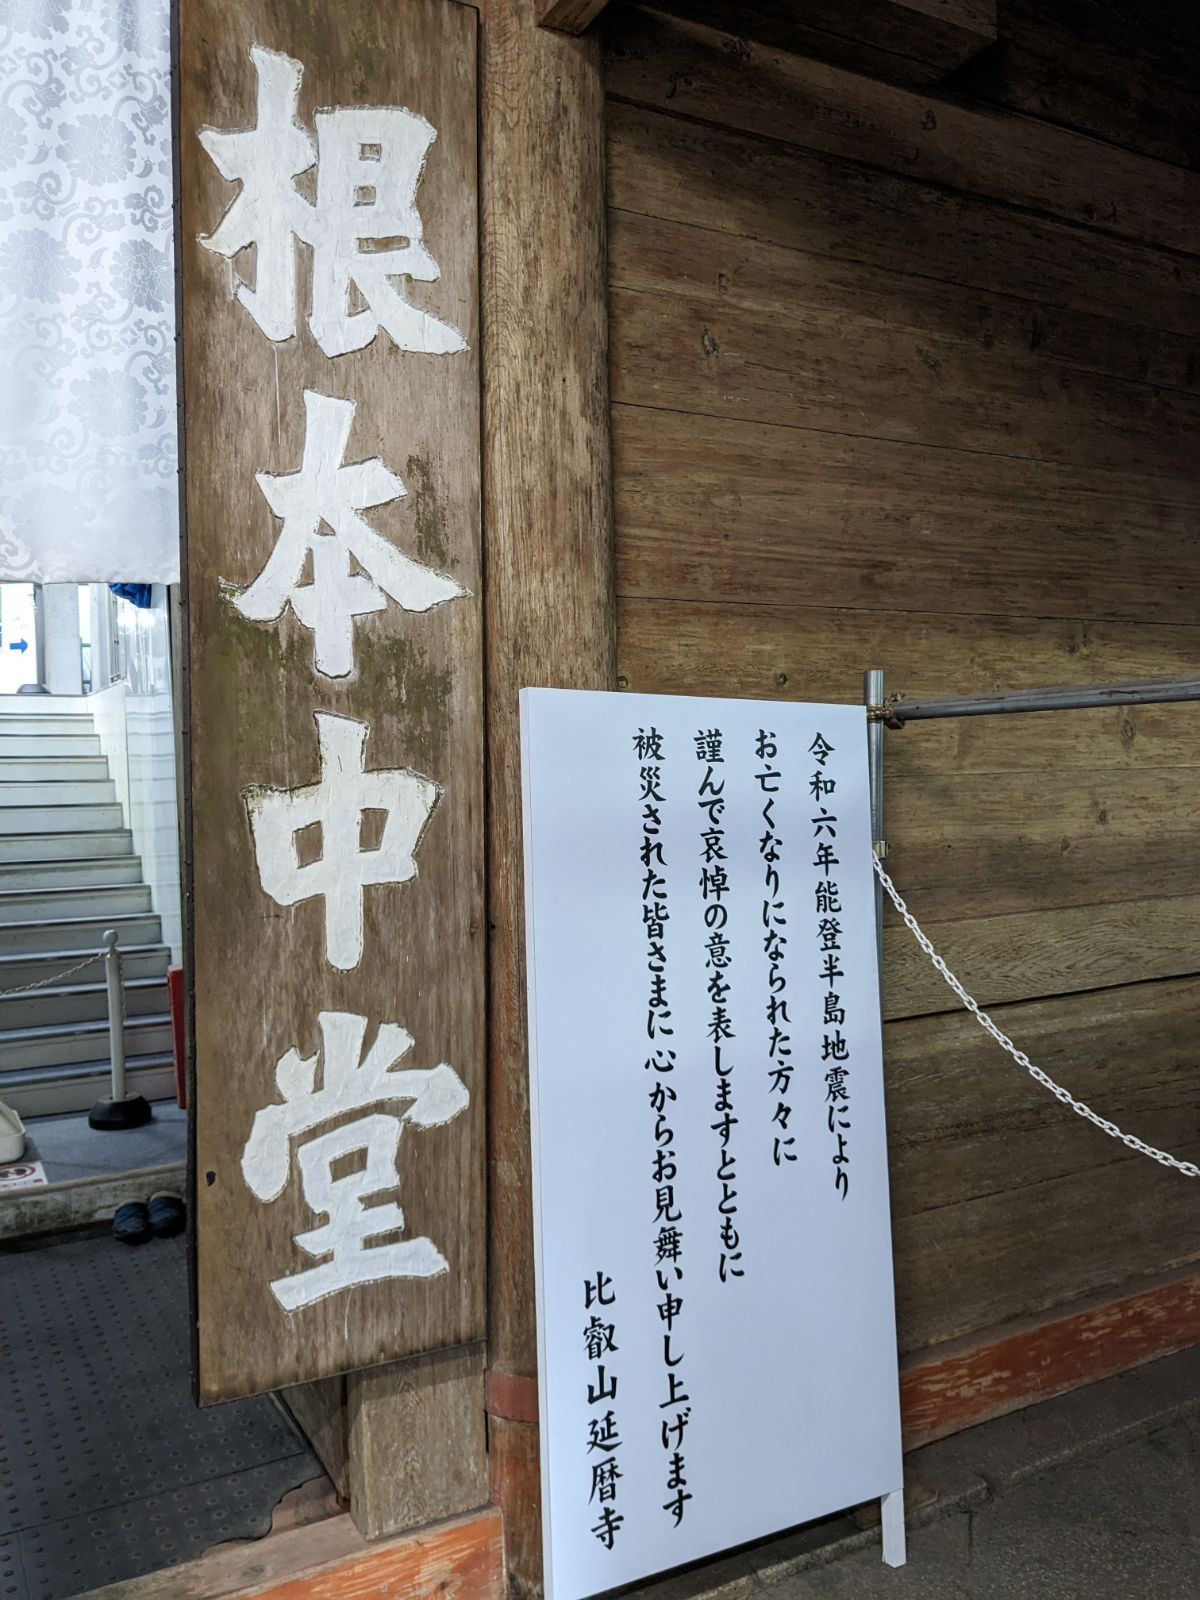 根本中堂
令和六年能登半島地震により
お亡くなりになられた方々に
謹んで哀悼の意を表しますとともに
被災された皆さまに心からお見舞い申し上げます
比叡山延暦寺